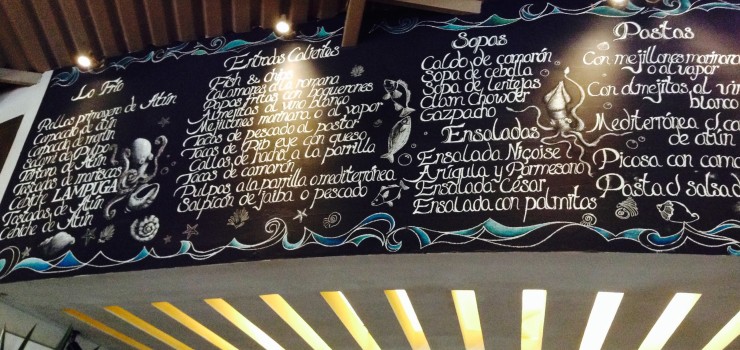 Lo Frío
Rollos primavera de Atún
Carpaccio de Atún
Carpaccio de marlin
Salami de Pulpo
Tártara de Atún
Tostadas de mariscos
Ceviche LAMPUGA
Tostadas de Atún
Ceviche de Atún
Entradas Calientes
Fish & chips
Calamares a la romana
Papas fritas con
Almejitas al vino blanco
Mejillones marinara o al vapor
Tacos de pescado al pastor
Tacos de Rib eye con queso
Callos de hacha a la parrilla
Tacos de camarón
Pulpos a la parrilla o mediterránea
Salpicón de jaiba o pescado
Sopas
Caldo de camarón
Sopa de cebolla
Sopa de lentejas
Clam Chowder
Gazpacho
Ensaladas
Ensalada Niçoise
Arúgula y Parmesano
Ensalada César
Ensalada con palmitos
Pastas
Con mejillones marinara
o al vapor
Con almejitas al vino
blanco
Mediterránea c/
de atún
Picosa con
Pasta d salsa